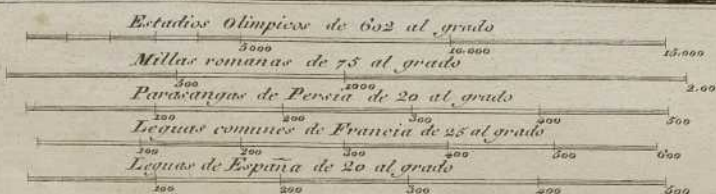 Estadios Olimpicos de 602 al grado
5000 10.000 15.000
Millas romanas de 75 al grado
500 1000 2.00
Parasangas de Persia de 20 al grado
100 200 300 400 500
Leguas comunes de Francia de 25 al grado
100 200 300 400 500 600
Leguas de España de 20 al grado
100 200 300 400 500